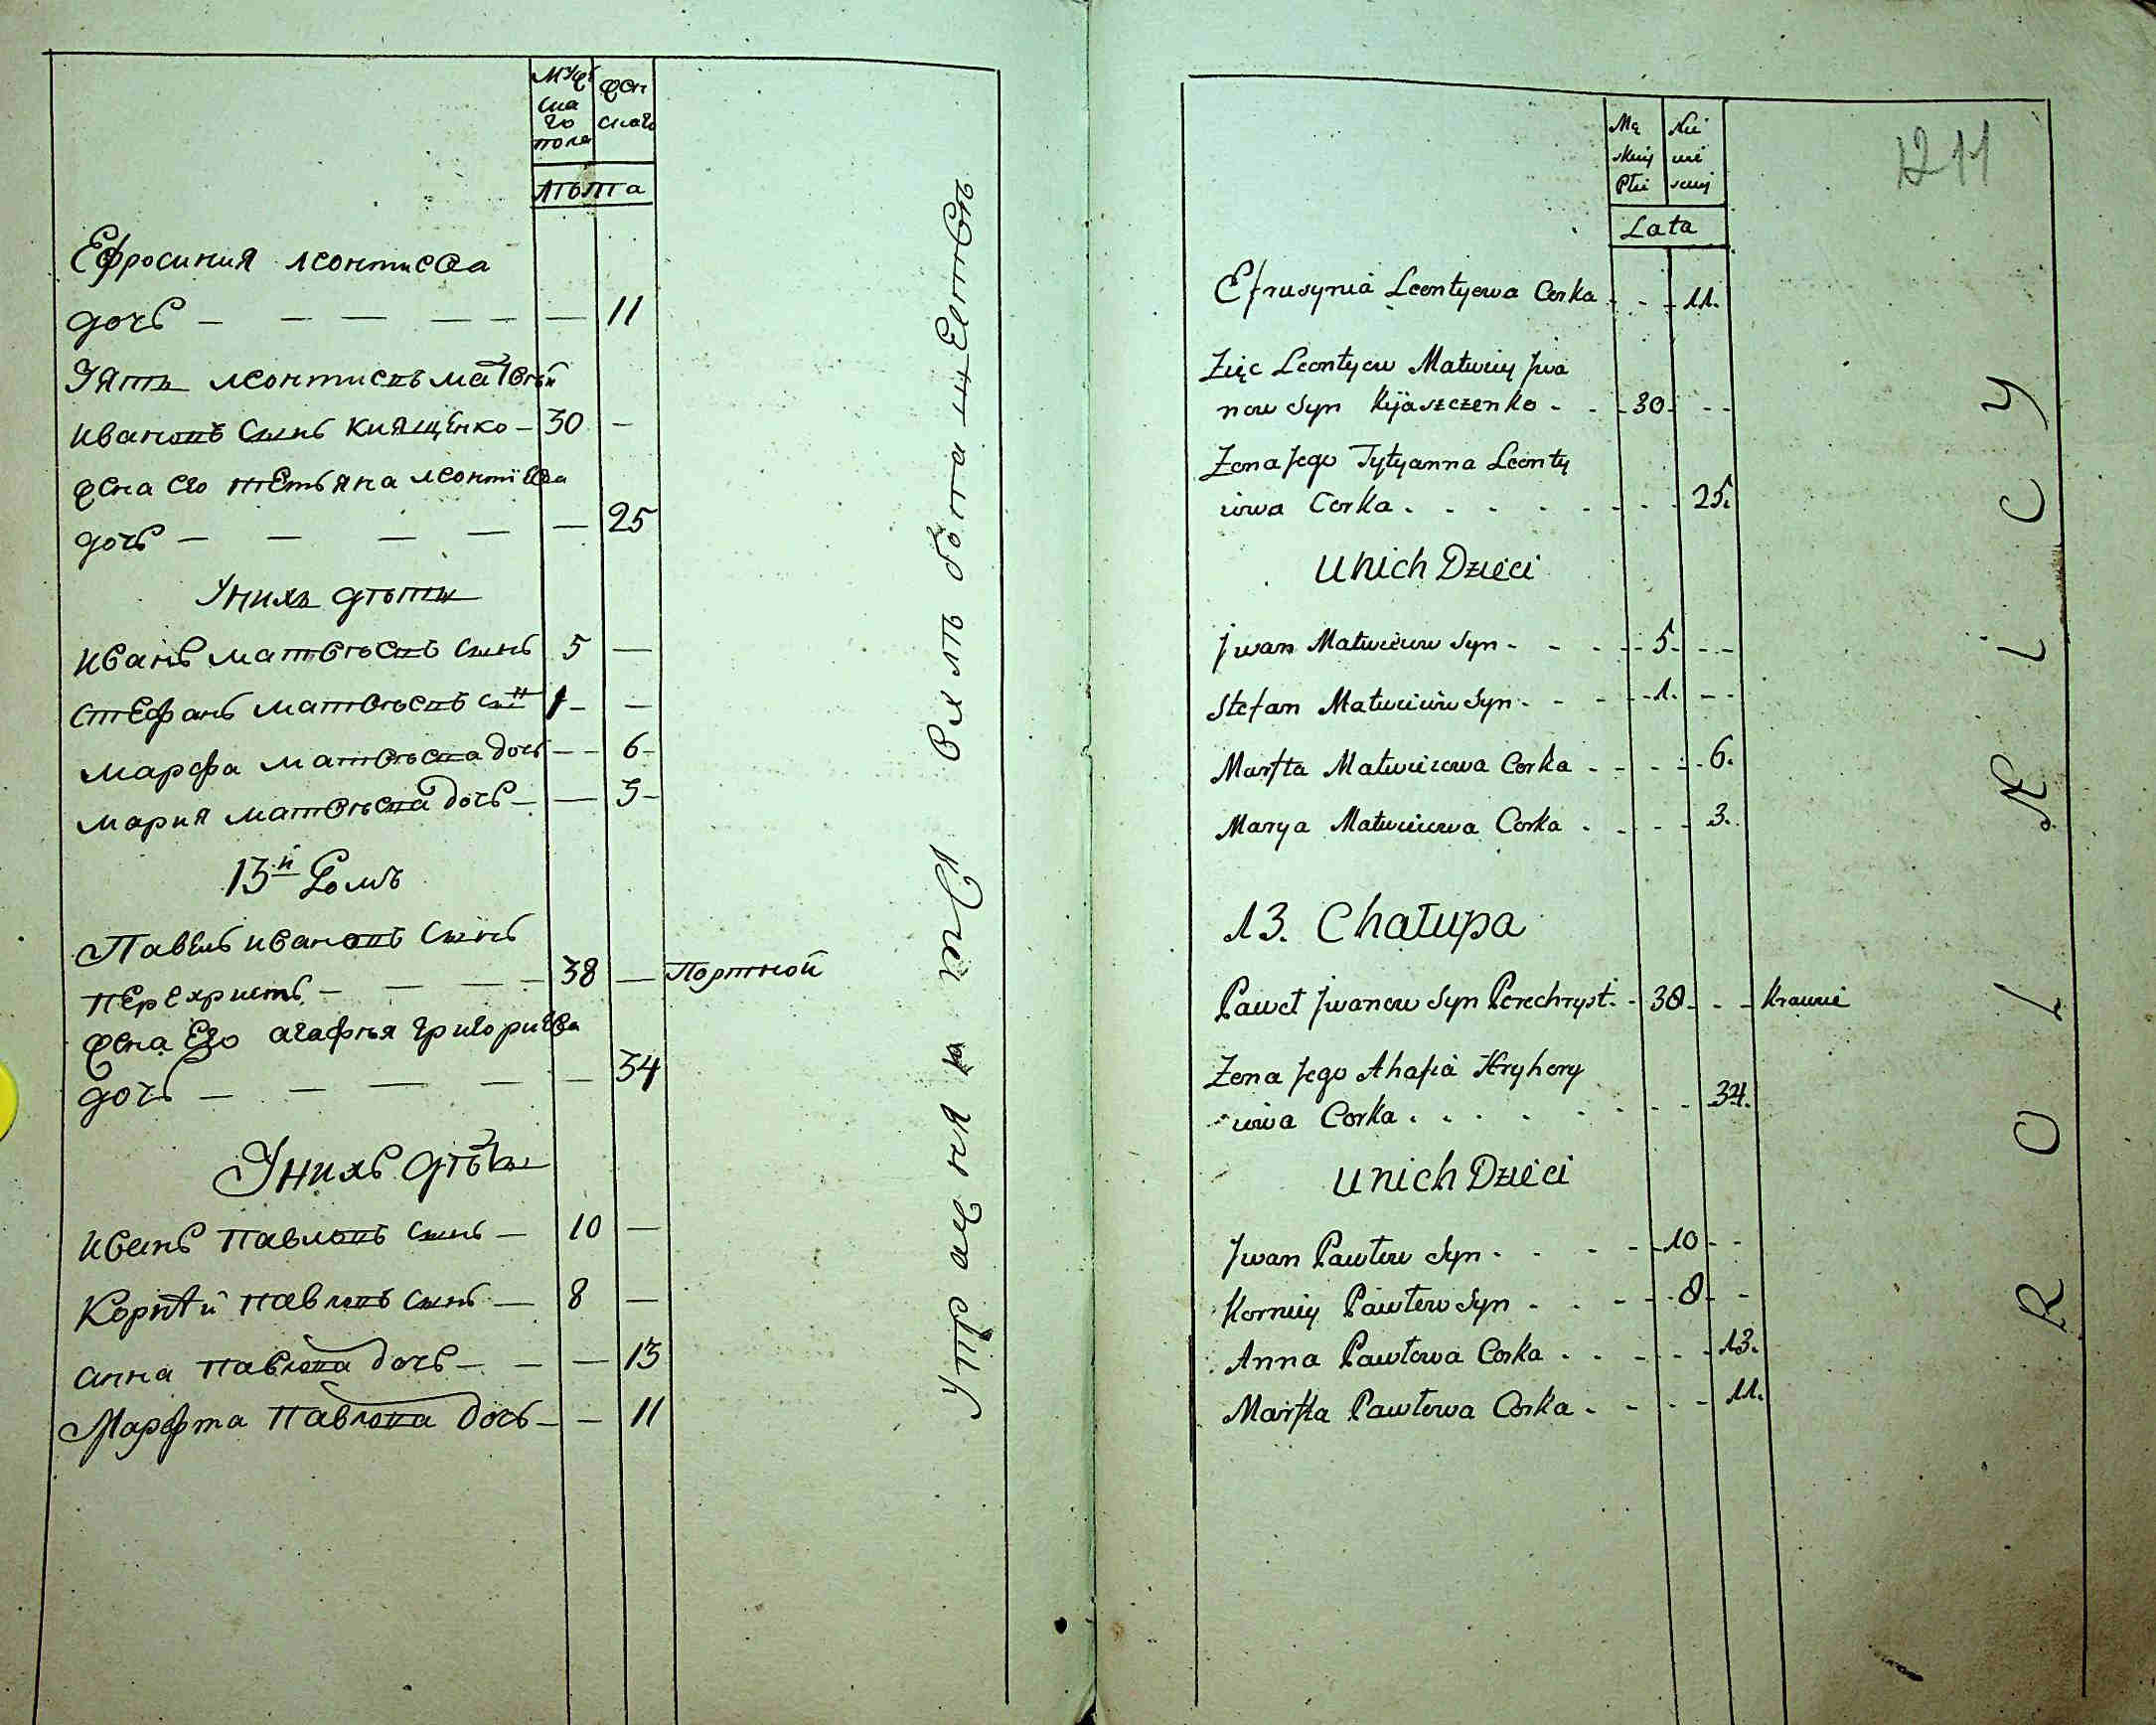 Мужскаго пола
женскаго
лѣта
Ефросиния леонтиева
дочь — — — — — — 11
Зять леонтиевъ матвѣй
ивановъ сынъ киященко — 30 —
жена его тетьяна леонтіева
дочь — — — — — 25
Унихъ дѣти
иванъ матвѣевъ сынъ 5 —
стефанъ матвѣевъ сын 1 — —
марфа матвѣева дочь — — 6 —
мария матвѣева дочь — — 3 —
13й Домъ
Павелъ ивановъ сынъ
перехристъ — — — — 38 — Портной
жена Его агафья григориева
дочь — — — — — 34
Унихъ дѣти
иванъ павловъ сынъ — 10 —
Корнѣй павловъ сынъ — 8 —
анна павлова дочь — — — 13
Марфта павлова дочь — — 11
Męskiej Płci
Lata
1211
Efrusynia Leontyewa Corka - - - 11.
Zięc Leontyew Matwiey Jwa
now Syn Kijaszczenko - - - 30 - -
Zona Jego Tytyanna Leonty
iowa Corka . - - - - - - - 25.
unich Dzieci
Jwan Matwieiew Syn - - - - 5 - - -
Stefan Matwieiew Syn - - - - 1. - -
Marfta Matwieiewa Corka - - - - - 6.
Marya Matwieiewa Corka . - - - 3.
13. Chałupa
Paweł Jwanow Syn Perechryst. - 38 - - - Krawiec
Zona Jego Ahafia Hryhory
iowa Corka . . . . - - - - 34.
unich Dzieci
Jwan Pawłow Syn - - - - - 10 - -
Korniey Pawłow Syn - - - - 8 - -
Anna Pawłowa Corka . - - - - 13.
Marfta Pawłowa Corka - - - - 11.
ROLNICY